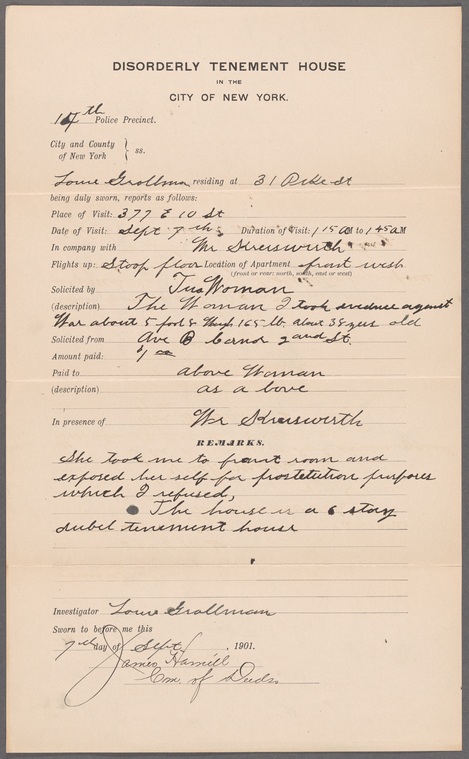 DISORDERLY TENEMENT HOUSE
IN THE
CITY OF NEW YORK.
Police Precinct.
City and County
of New York } ss.
Louie Grallman residing at 31 Pike St
being duly sworn, reports as follows:
Place of Visit: 377 E 10 St
Date of Visit: Sept 7th Duration of Visit: 1 15 AM to 1 45 AM
In company with Mr Kreiswirth
Flights up: Stoop floor Location of Apartment front west
(front or rear: north, south, east or west)
Solicited by Woman
(description) The Woman I took evidence against
War about 5 foot 8 165 lb. about 38 old
Solicited from Ave B 2 and St.
Amount paid: $1 00
Paid to above Woman
(description) as a bove
In presence of Mr Kreiswerth
REMARKS.
She took me to front room and
exposed her self for prostetution purposes
which I refused,
The house is a 6 story
dubel tenement house
Investigator Louie Grallman
Sworn to before me this
7th day of Sept, 1901.
James Hamill
Com. of Deeds